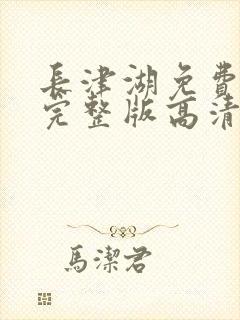 長津湖免費
完整版高清
馬潔君